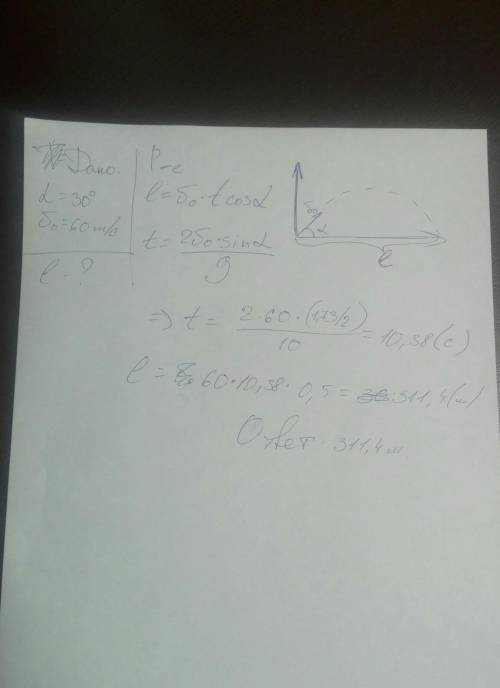 Дано:
α = 30°
υ₀ = 60 м/с
l - ?
Р-е
l = υ₀ · t cosα
t = 2υ₀ · sinα / g
υ₀
α
l
=> t = 2 · 60 · (1,73/2) / 10 = 10,38 (с)
l = 60 · 10,38 · 0,5 = 311,4 (м)
Ответ: 311,4 м